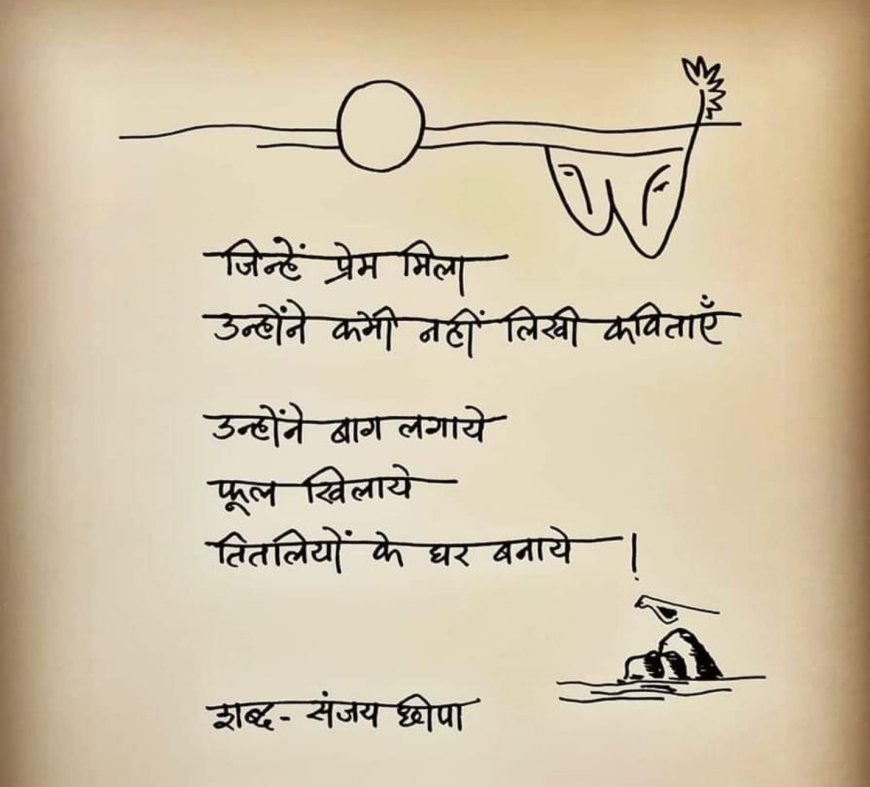 जिन्हें प्रेम मिला
उन्होंने कभी नहीं लिखी कविताएँ
उन्होंने बाग लगाये
फूल खिलाये
तितलियों के घर बनाये !
शब्द - संजय छीपा